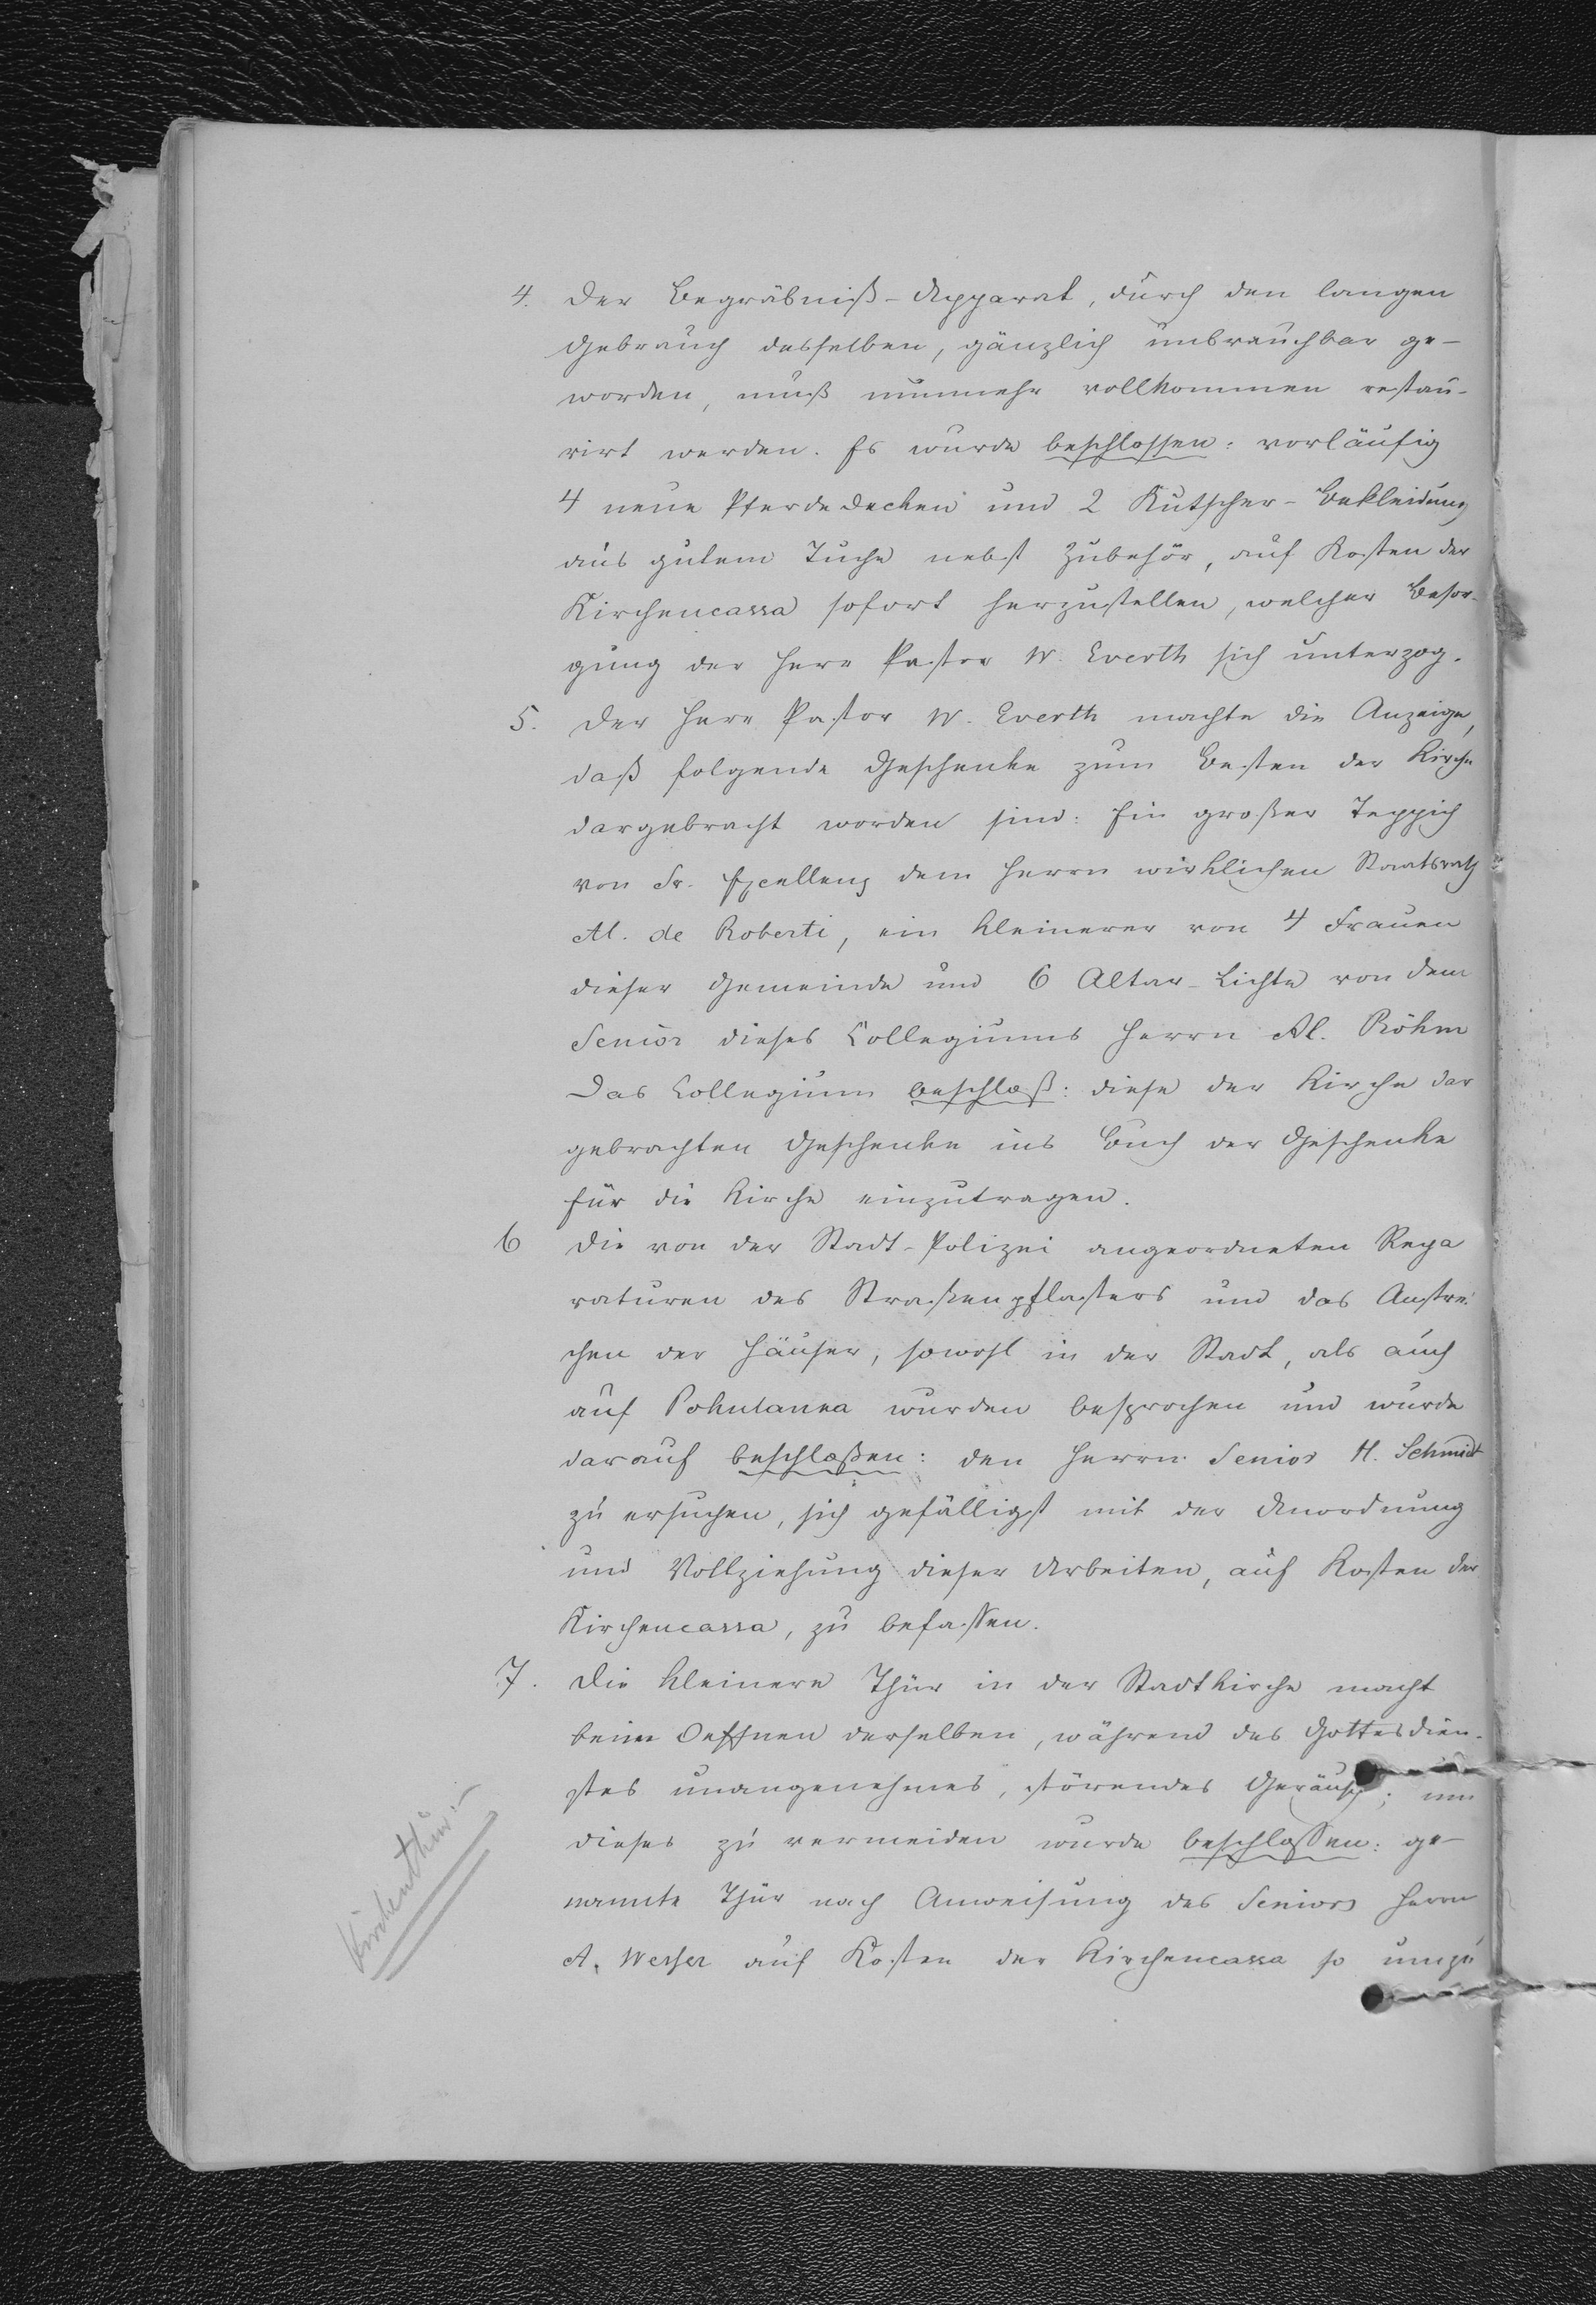 4. Der Begräbniß-Apparat, durch den langen
Gebrauch desselben, gänzlich unbrauchbar ge-
worden, muß nunmehr vollkommen restau-
rirt werden. Es wurde beschlossen: vorläufig
4 neue Pferdedecken und 2 Kutscher-Bekleidung
aus gutem Tuche nebst Zubehör, auf Kosten der
Kirchencassa sofort herzustellen, welcher Besor-
gung der Herr Pastor W. Everth sich unterzog.
5. Der Herr Pastor W. Everth machte die Anzeige,
daß folgende Geschenke zum Besten der Kirche
dargebracht worden sind: Ein großer Teppich
von Sr. Excellenz dem Herrn wirklichen Staatsrath
Al. de Roberti, ein kleinerer von 4 Frauen
dieser Gemeinde und 6 Altar-Lichte von dem
Senior dieses Collegiums Herrn Al. Röhm
Das Collegium beschloß: diese der Kirche dar
gebrachten Geschenke ins Buch der Geschenke
für die Kirche einzutragen.
6 Die von der Stadt-Polizei angeordneten Repa
raturen des Straßenpflasters und das Anstrei
chen der Häuser, sowohl in der Stadt, als auch
auf Pohulanka wurden besprochen und wurde
darauf beschloßen: den Herrn Senior H. Schmidt
zu ersuchen, sich gefälligst mit der Anordnung
und Vollziehung dieser Arbeiten, auf Kosten der
Kirchencassa, zu befassen.
7. Die kleinere Thür in der Stadtkirche macht
beim Oeffnen derselben, während des Gottesdien-
stes unangenehmes, störendes Geräusch; um
dieses zu vermeiden wurde beschlossen: ge-
nannte Thür nach Anweisung des Seniors Herrn
A. Weßer auf Kosten der Kirchencassa so umzu
Kirchenthür:-